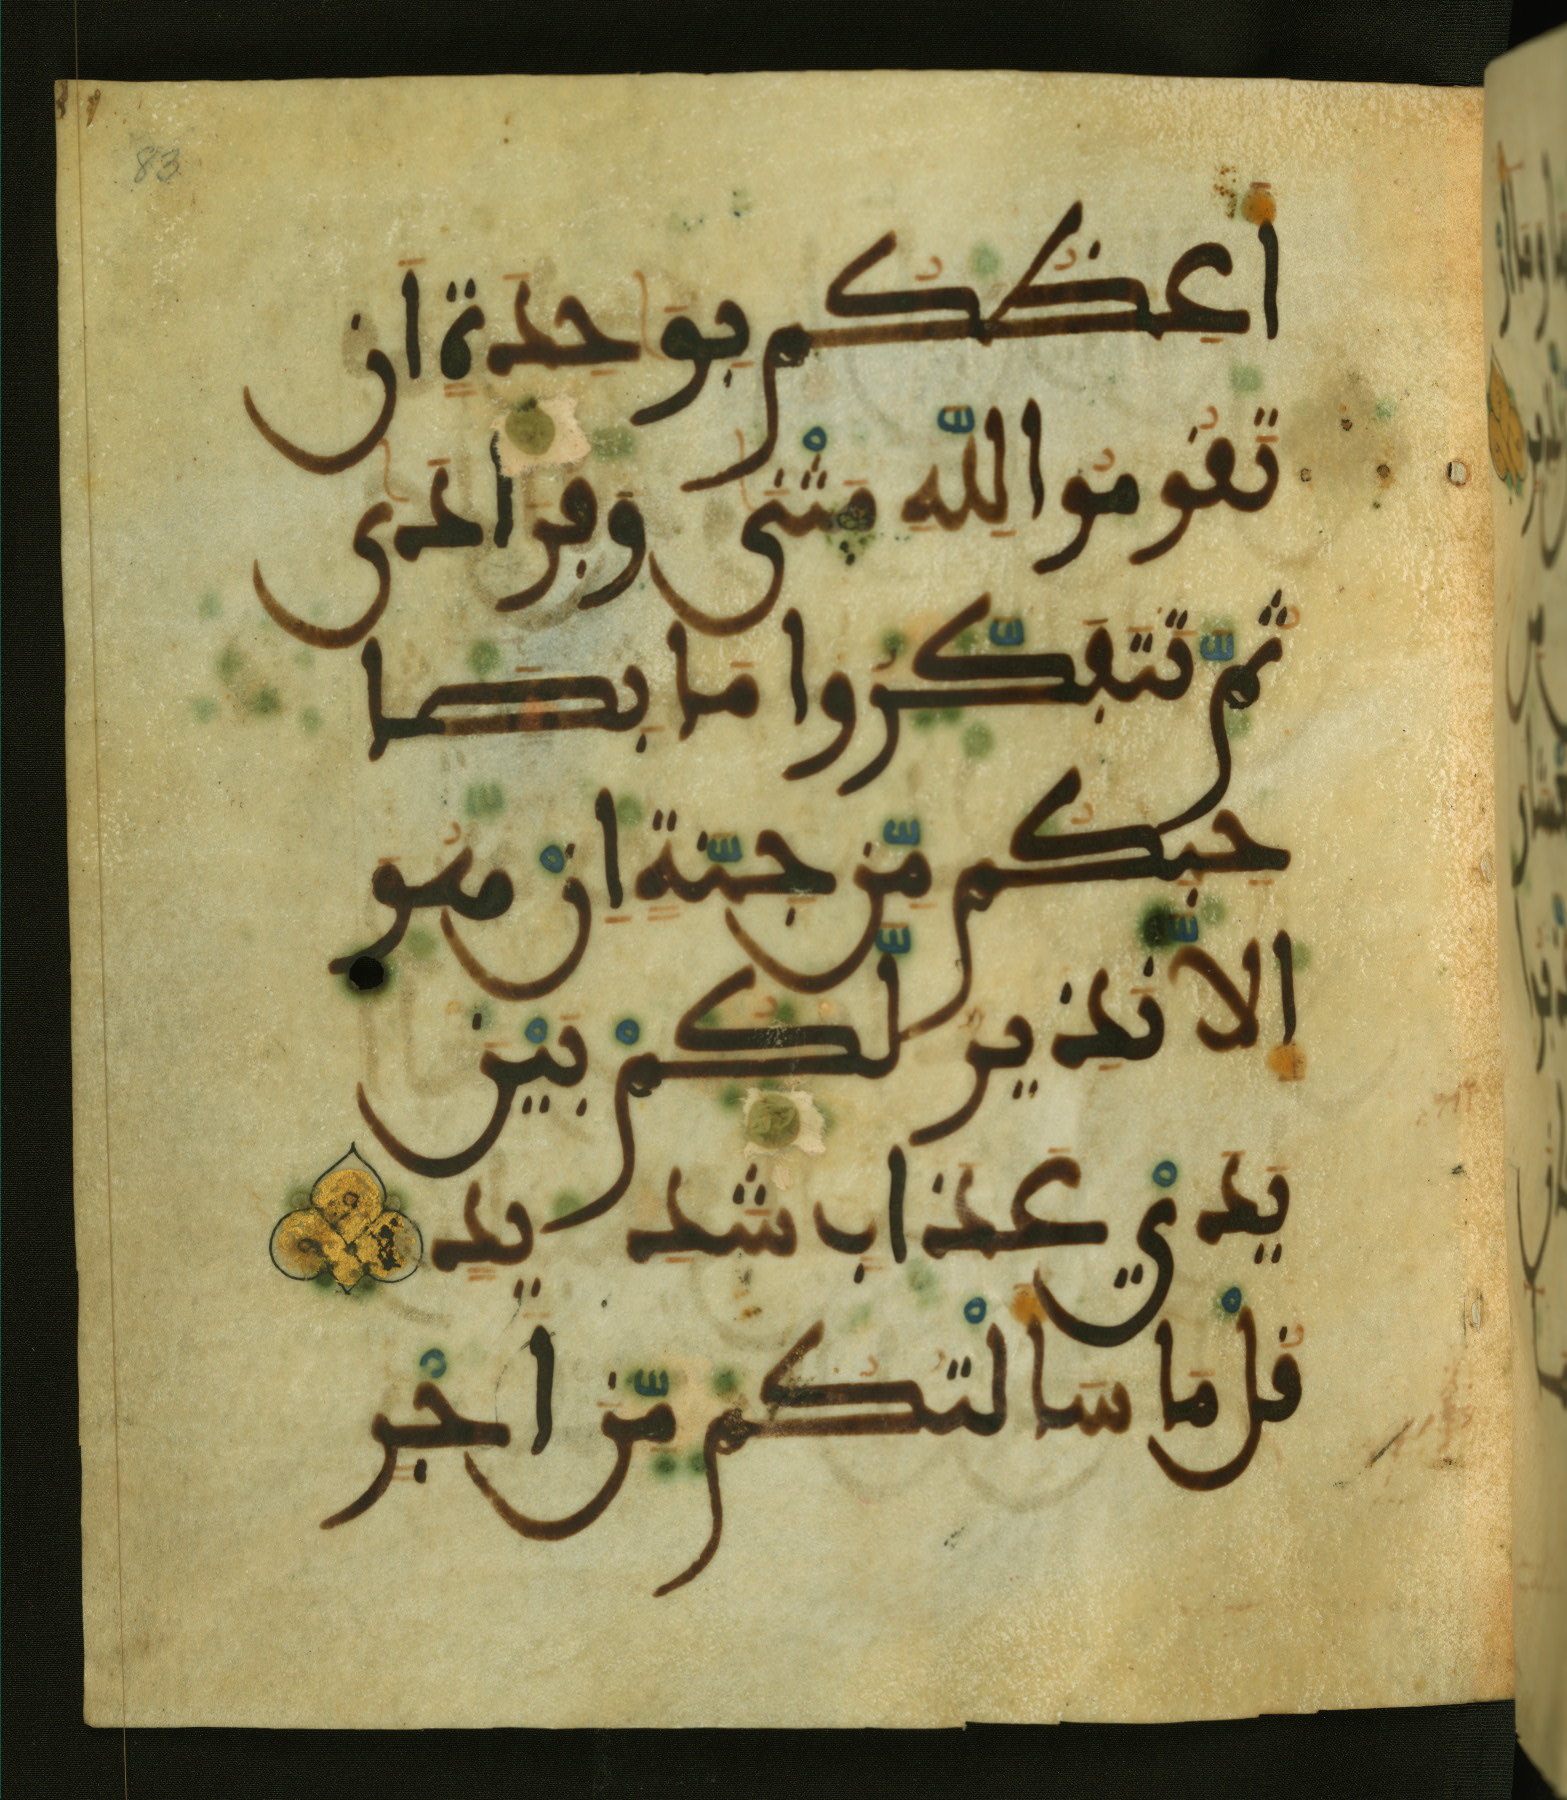 83
أَعِظُكُم بِوَٰحِدَةٍ أَن
تَقُومُوا لِلَّهِ مَثْنَىٰ وَفُرَادَىٰ
ثُمَّ تَتَفَكَّرُوا مَا بِصَا
حِبِكُم مِّن جِنَّةٍ اِنْ هُوَ
اِلَّا نَذِيرٌ لَّكُمْ بَيْنَ
يَدَيْ عَذَابٍ شَدِيدٍ
قُلْ مَا سَأَلْتُكُم مِّنْ اَجْرٍ